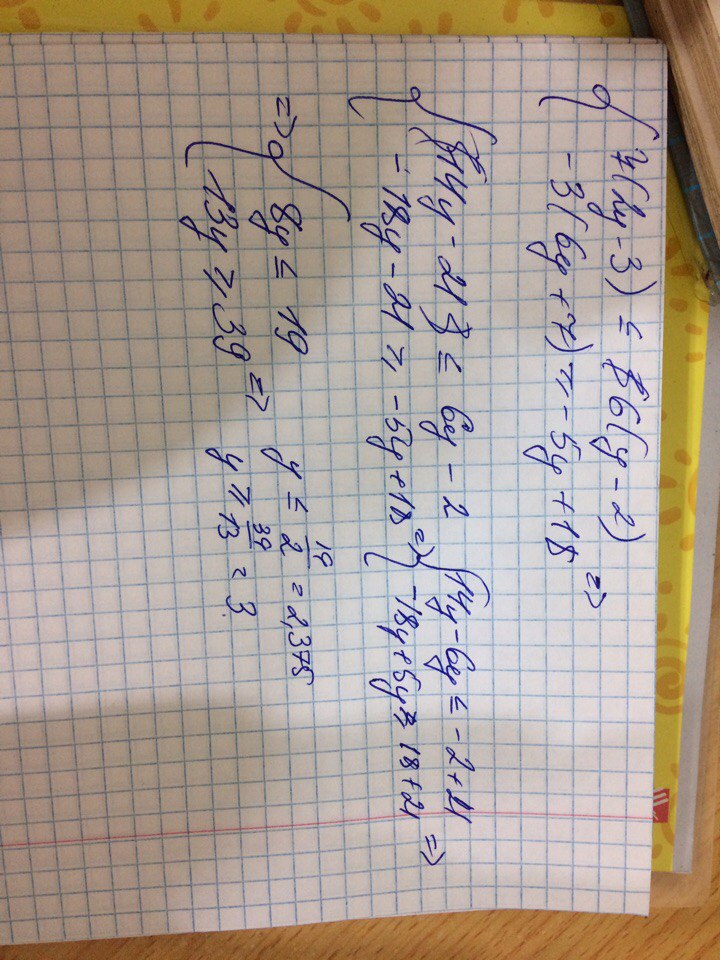 { 7(2y-3) ≤ 6(y-2)
-3(6y+7) ≥ -5y+18 =>
{ 14y-21 ≤ 6y-2
-18y-21 ≥ -5y+18 => { 14y-6y ≤ -2+21
-18y+5y ≥ 18+21 =>
=> { 8y ≤ 19
13y ≥ 39 => y ≤ 19/2 = 2,375
y ≥ 39/13 = 3